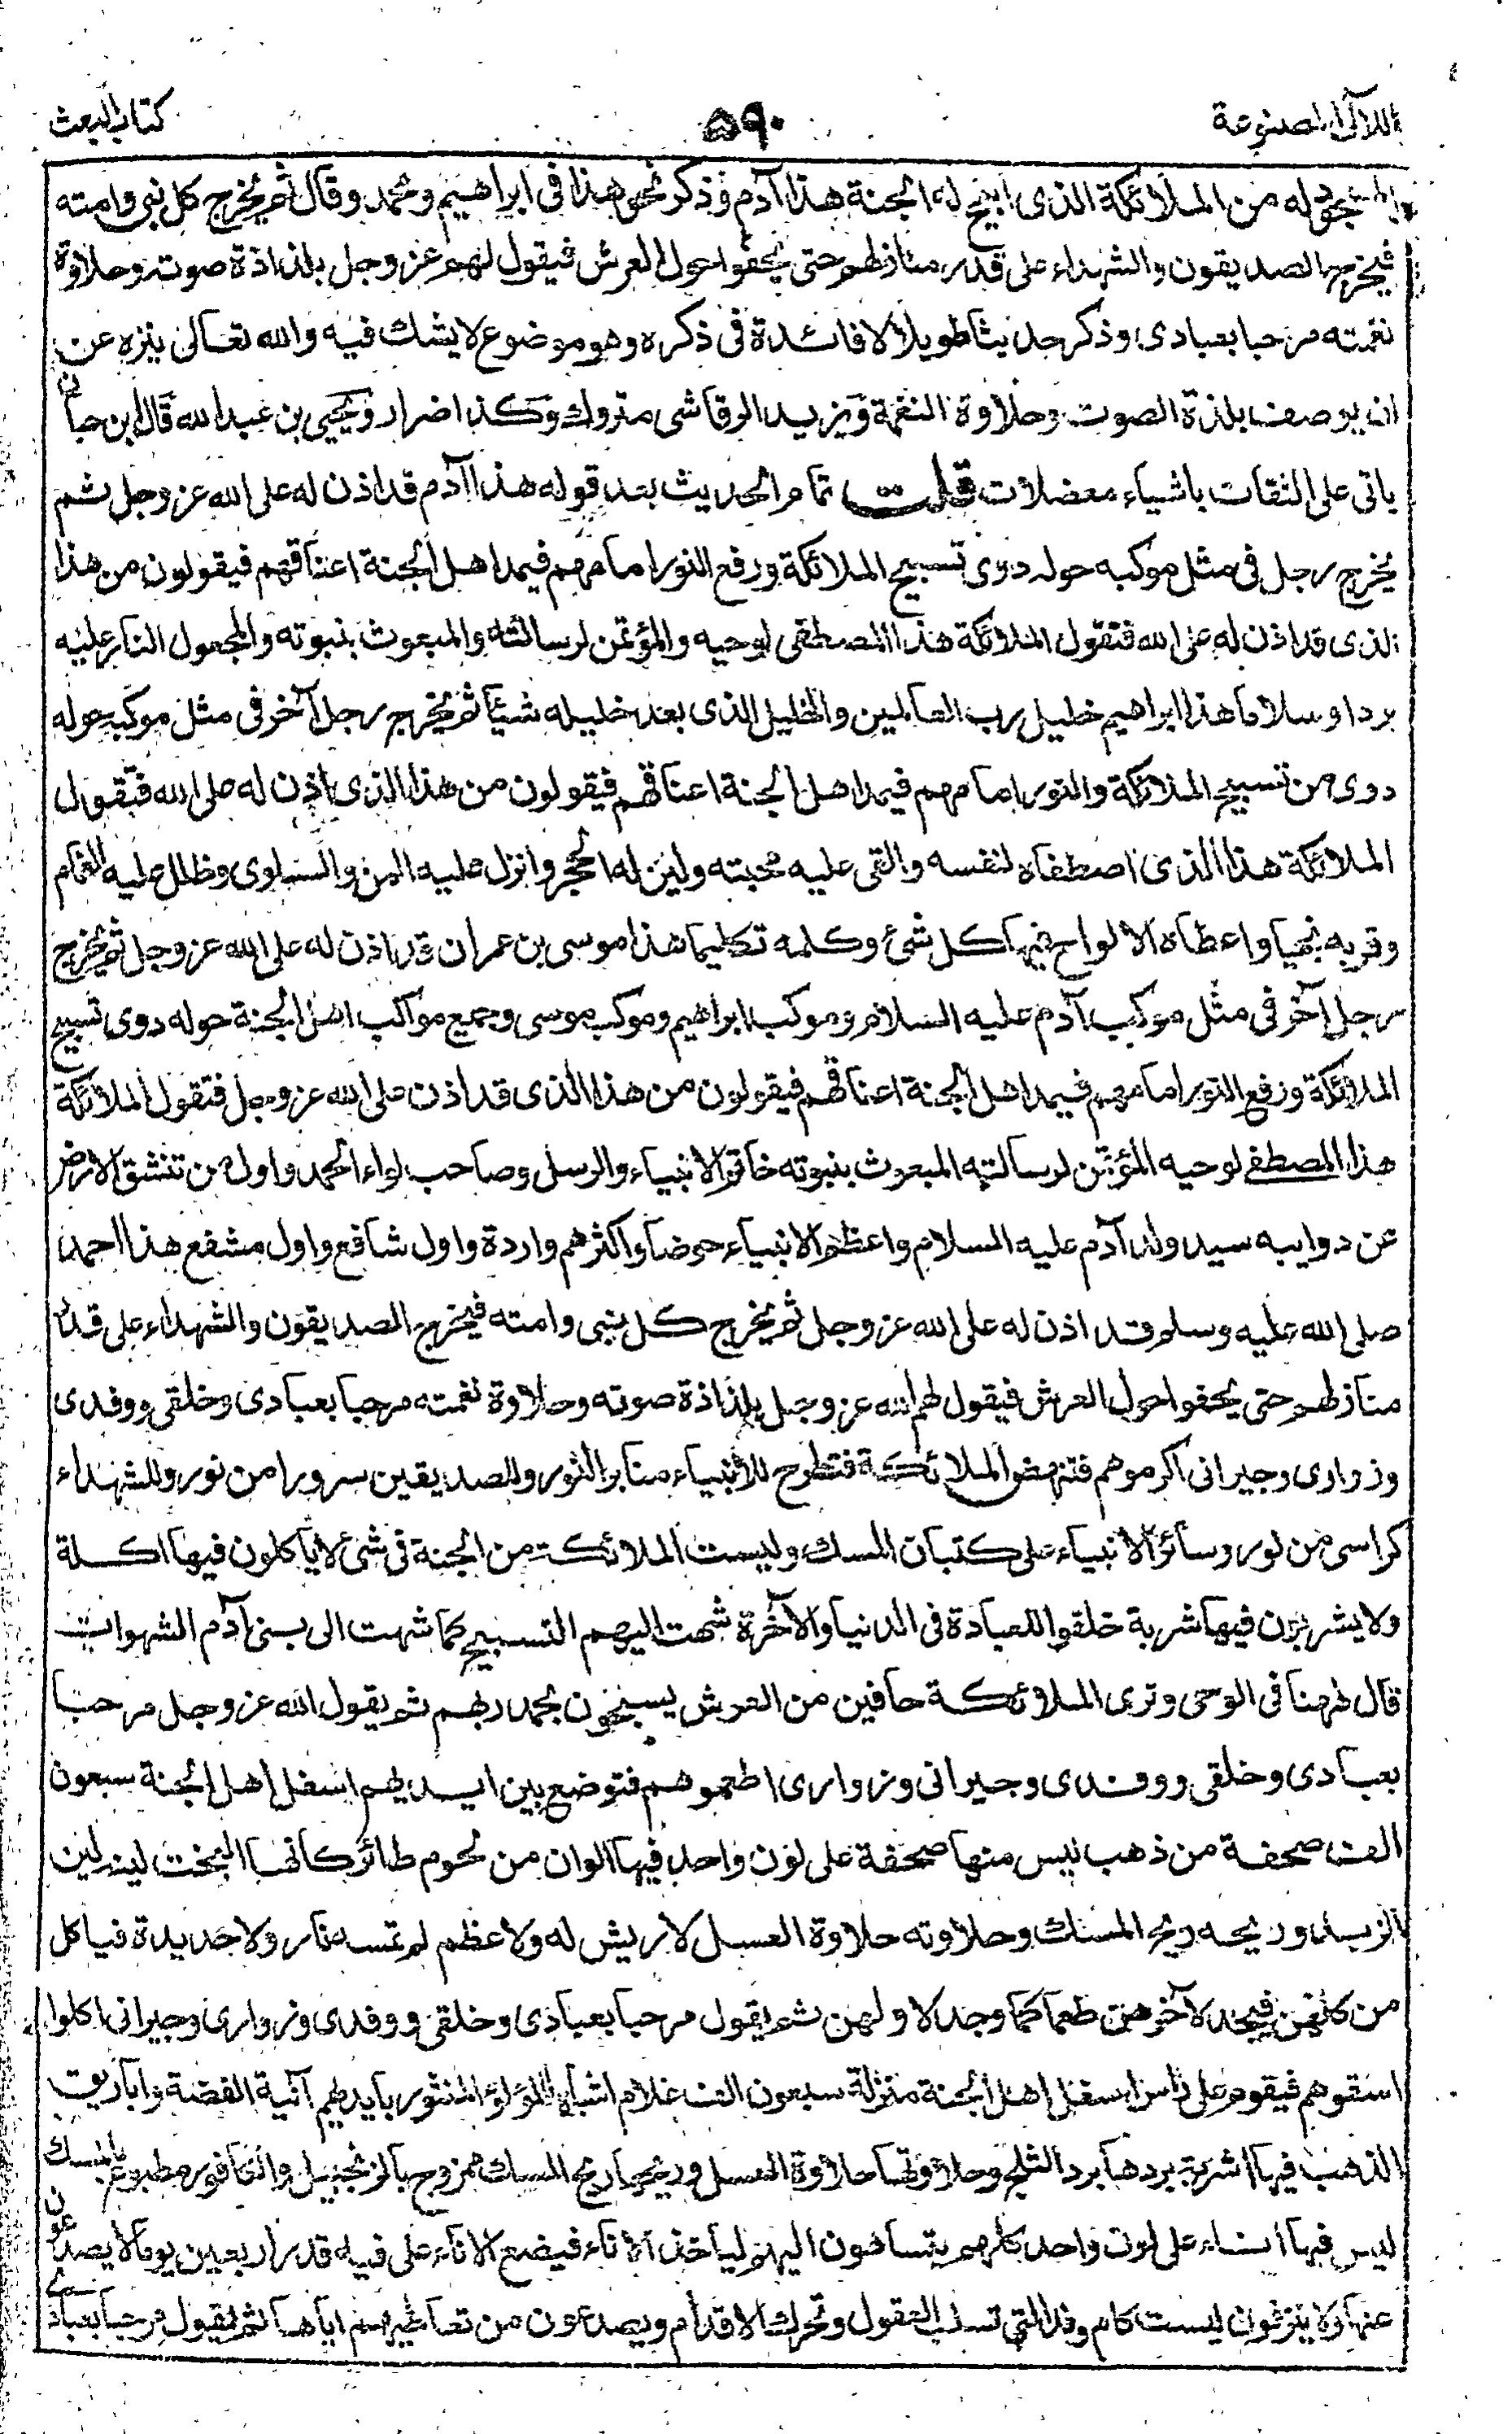 اللآلى المصنوعة
٥٩٠
كتاب البعث
له من الملائكة الذى ابيح له الجنة هذا آدم وذكر نحو هذا فى ابراهيم ومحمد وقال ثم يخرج كل نبى وامته
فيخرج الصديقون والشهداء على قدر منازلهم حتى يحفوا حول العرش فيقول لهم عز وجل بلذاذة صوته وحلاوة
نغمته مرحبا بعبادى وذكر حديثا طويلا لا فائدة فى ذكره وهو موضوع لا يشك فيه والله تعالى ينزه عن
ان يوصف بلذة الصوت وحلاوة النغمة ويزيد الرقاشى متروك وكذا ضرار ويحيى بن عبد الله قال ابن حبان
ياتى على الثقات باشياء معضلات قلت تمام الحديث بعد قوله هذا آدم قد اذن له على الله عز وجل ثم
يخرج رجل فى مثل موكبه حوله دوى تسبيح الملائكة ورفع النور امامهم فيمد اهل الجنة اعناقهم فيقولون من هذا
الذى قد اذن له على الله فتقول الملائكة هذا المصطفى لوحيه والمؤتمن لرسالته والمبعوث بنبوته والمجعول النار عليه
بردا وسلاما هذا ابراهيم خليل رب العالمين والخليل الذى بعد خليله شيئا ثم يخرج رجل آخر فى مثل موكبه حوله
دوى من تسبيح الملائكة والنور امامهم فيمد اهل الجنة اعناقهم فيقولون من هذا الذى اذن له على الله فتقول
الملائكة هذا الذى اصطفاه لنفسه والقى عليه محبته ولين له الحجر وانزل عليه المن والسلوى وظلل عليه الغمام
وقربه نجيا واعطاه الالواح فيها كل شئ وكلمه تكليما هذا موسى بن عمران قد اذن له على الله عز وجل ثم يخرج
رجل آخر فى مثل موكب آدم عليه السلام وموكب ابراهيم وموكب موسى وجميع مواكب اهل الجنة حوله دوى تسبيح
الملائكة ورفع النور امامهم فيمد اهل الجنة اعناقهم فيقولون من هذا الذى قد اذن على الله عز وجل فتقول الملائكة
هذا المصطفى لوحيه المؤتمن لرسالته المبعوث بنبوته خاتم الانبياء والرسل وصاحب لواء الحمد واول من تنشق الارض
عن دوايبه سيد ولد آدم عليه السلام واعظم الانبياء حوضا واكثرهم واردة واول شافع واول مشفع هذا احمد
صلى الله عليه وسلم قد اذن له على الله عز وجل ثم يخرج كل نبى وامته فيخرج الصديقون والشهداء على قدر
منازلهم حتى يحفوا حول العرش فيقول لهم الله عز وجل بلذاذة صوته وحلاوة نغمته مرحبا بعبادى وخلقى ووفدى
وزوارى وجيرانى اكرموهم فتنهض الملائكة فتطرح للانبياء منابر النور وللصديقين سرورا من نور وللشهداء
كراسى من نور وسائر الانبياء على كتبان المسك وليست الملائكة من الجنة فى شئ لا ياكلون فيها اكلة
ولا يشربون فيها شربة خلقوا للعبادة فى الدنيا والآخرة شهت اليهم التسبيح كما شهت الى بنى آدم الشهوات
قال لهم هنا فى الوحى وترى الملائكة حافين من العرش يسبحون بحمد ربهم ثم يقول الله عز وجل مرحبا
بعبادى وخلقى ووفدى وجيرانى وزوارى اطعموهم فتوضع بين ايديهم اسفل اهل الجنة سبعون
الف صحفة من ذهب ليس منها صحفة على لون واحد فيها الوان من لحوم طائر كانها البخت لينه لين
الزبد وريحه ريح المسك وحلاوته حلاوة العسل لا ريش له ولا عظم لم تمسه نار ولا حديدة فياكل
من كلهن فيجد لآخرهن طعما كما وجد لاولهن ثم يقول مرحبا بعبادى وخلقى ووفدى وزوارى وجيرانى اكلوا
اسقوهم فيقوم على راس اسفل اهل الجنة منزلة سبعون الف غلام اشباه اللؤلؤ المنثور بايديهم آنية الفضة واباريق
الذهب فيها اشربة بردها برد الثلج وحلاوتها حلاوة العسل وريحها ريح المسك ممزوج بالزنجبيل والكافور مطبوع بالمسك
ليس فيها اناء على لون واحد كلهم يتساهون اليهم لياخذ الاناء فيضع الاناء على فيه قدر اربعين يوما لا يصدعون
عنها ولا ينزفون ليست كام وذا التى تسلب العقول وتحرك الاقدام ويصدعون من اياها ثم يقول مرحبا بعبادى